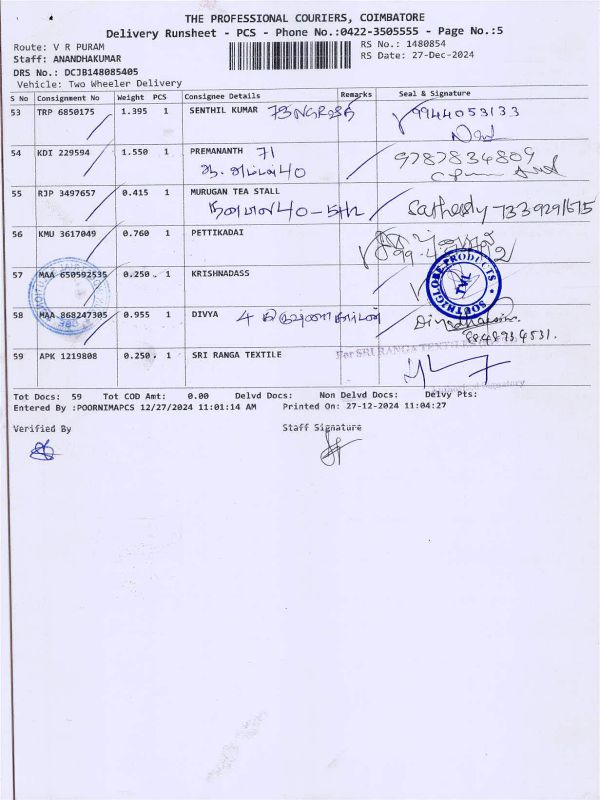 THE PROFESSIONAL COURIERS, COIMBATORE
Delivery Runsheet - PCS - Phone No.:0422-3505555 - Page No.:5
Route: V R PURAM
RS No.: 1480854
Staff: ANANDHAKUMAR
RS Date: 27-Dec-2024
DRS No.: DCJB148085405
Vehicle: Two Wheeler Delivery
S No Consignment No Weight PCS Consignee Details Remarks Seal & Signature
53 TRP 6850175 1.395 1 SENTHIL KUMAR 9944053133
54 KDI 229594 1.550 1 PREMANANTH 71 9787834809
40
55 RJP 3497657 0.415 1 MURUGAN TEA STALL
7339291675
56 KMU 3617049 0.760 1 PETTIKADAI
57 MAA 650592535 0.250 1 KRISHNADASS
SOUTH GLOBE PRODUCTS
58 MAA 868247305 0.955 1 DIVYA 4
59 APK 1219808 0.250 1 SRI RANGA TEXTILE
For SRI RANGA TEXTILE
Authorised Signatory
Tot Docs: 59 Tot COD Amt: 0.00 Delvd Docs: Non Delvd Docs: Delvy Pts:
Entered By :POORNIMAPCS 12/27/2024 11:01:14 AM Printed On: 27-12-2024 11:04:27
Verified By Staff Signature